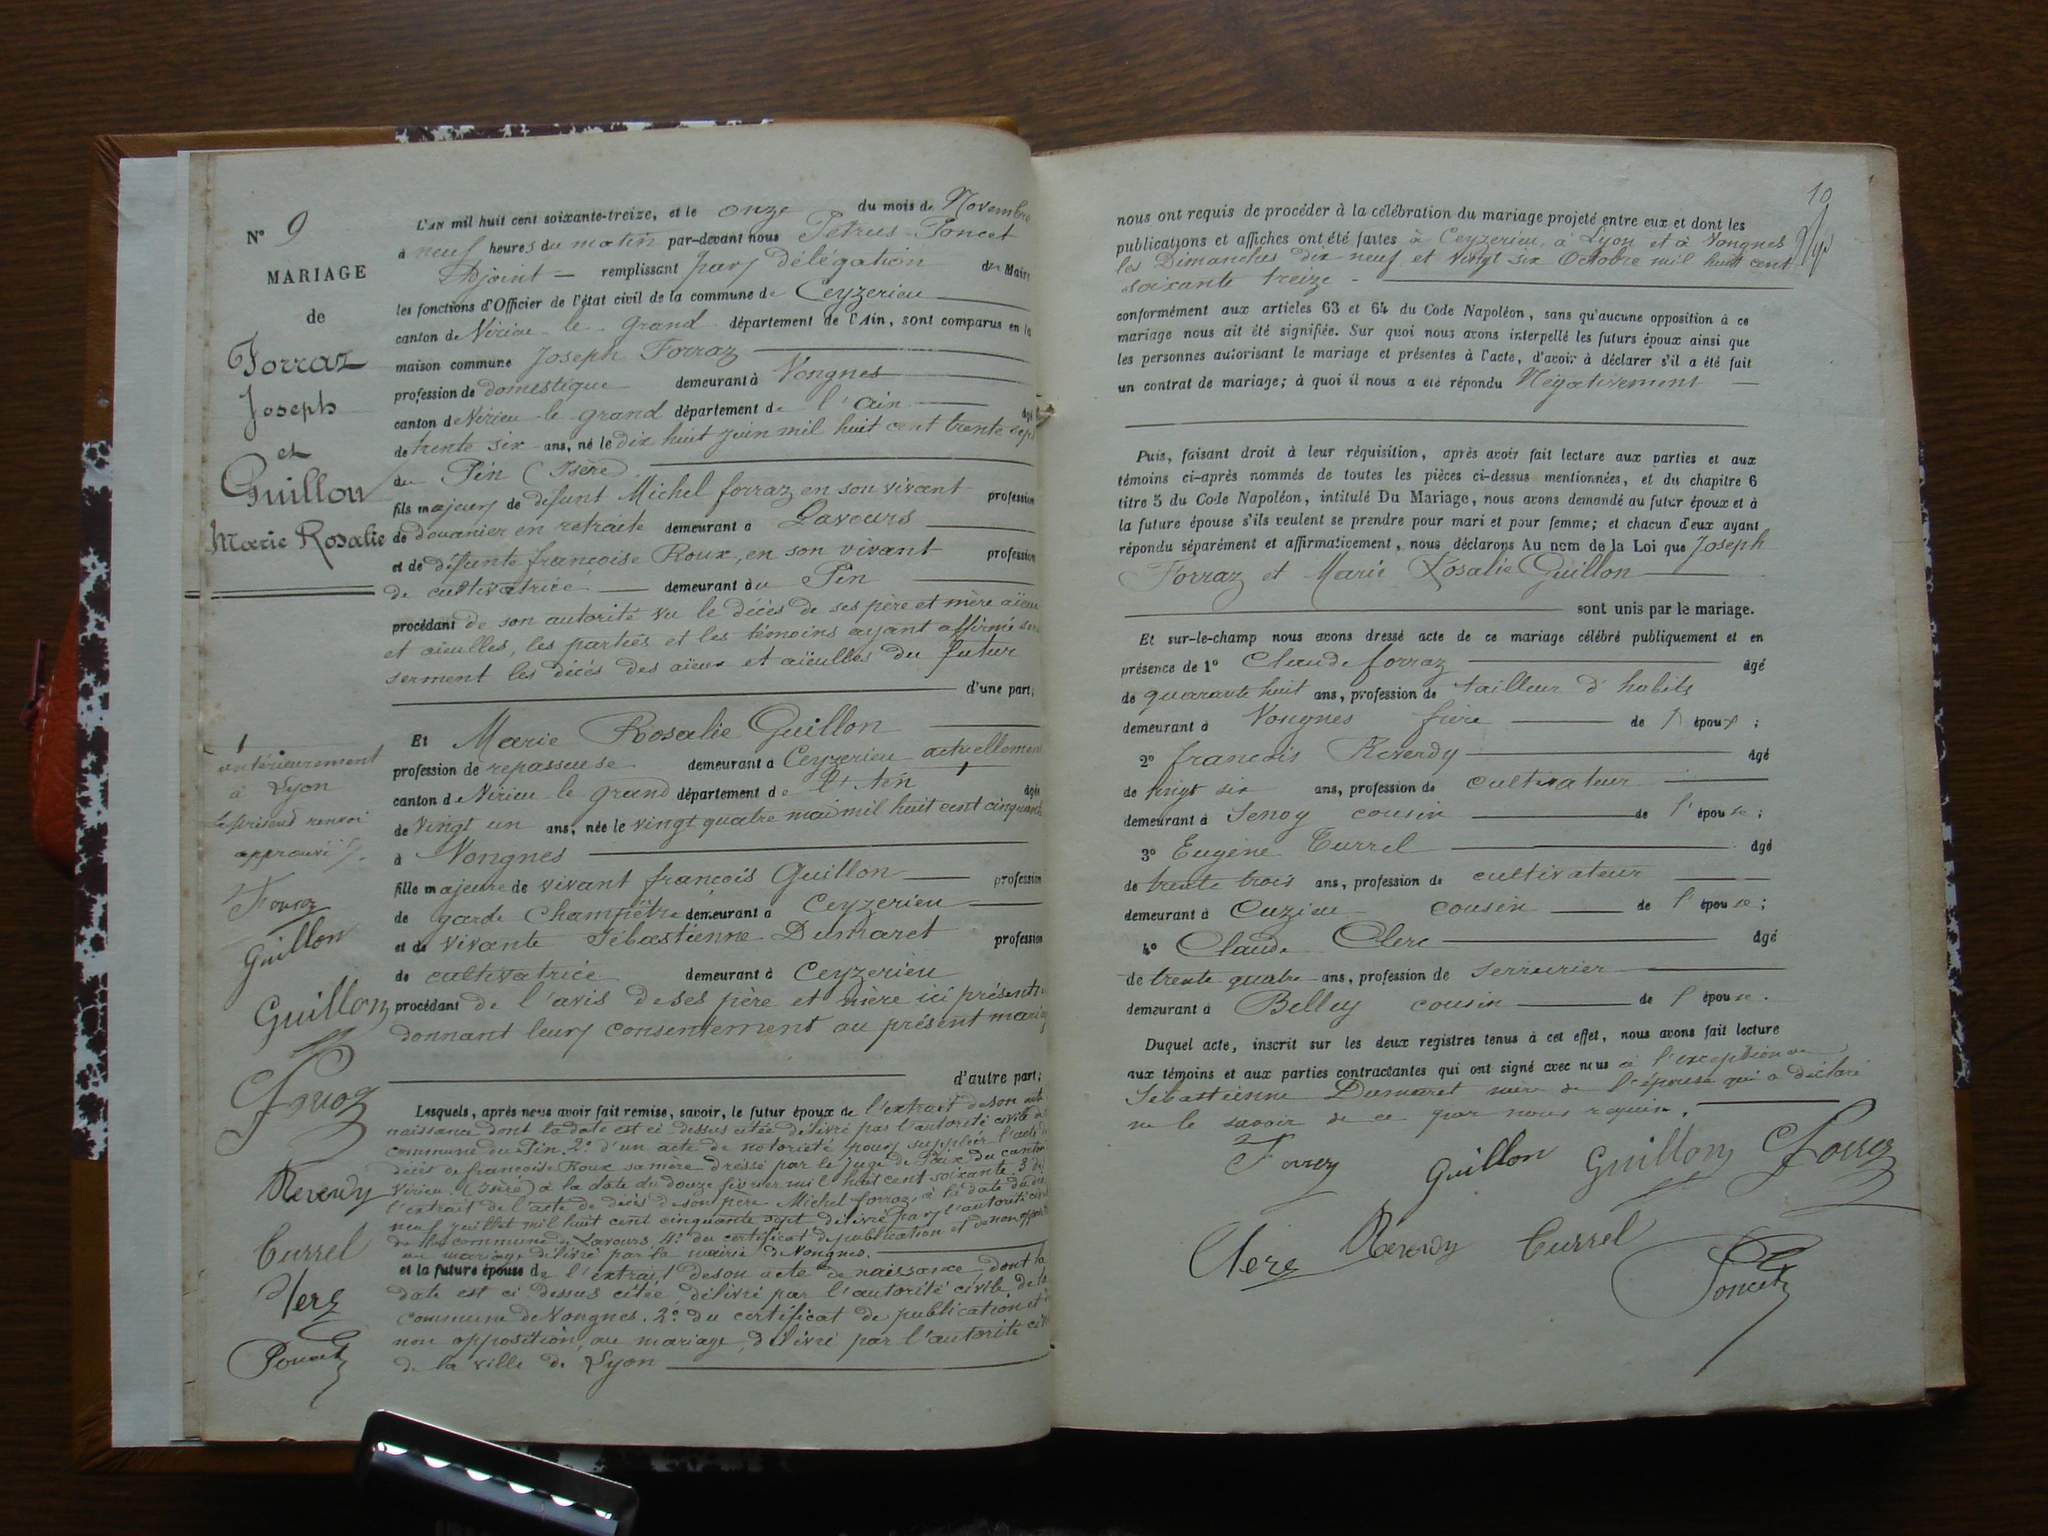 N° 9
MARIAGE
de
Forraz
Joseph
et
Guillon
Marie Rosalie
L'AN mil huit cent soixante-treize, et le onze du mois de Novembre
à neuf heures du matin par-devant nous Pétrus Poncet
Adjoint remplissant par délégation du Maire
les fonctions d'Officier de l'état civil de la commune de Ceyzerieu
canton de Virieu le grand département de l'Ain, sont comparus en la
maison commune Joseph Forraz
profession de domestique demeurant à Vongnes
canton de Virieu le grand département de l'ain âgé
de trente six ans, né le dix huit juin mil huit cent trente sept
du Pin (Isère)
fils majeur de defunt Michel forraz en son vivant profession
de douanier en retraite demeurant à Lavours
et de défunte francoise Roux, en son vivant profession
de cultivatrice demeurant au Pin
procédant de son autorité vu le décès de ses père et mère aïeux
et aïeulles, les parties et les témoins ayant affirmé sous
serment les décés des aïeux et aïeulles du futur
d'une part;
Et Marie Rosalie Guillon
profession de repasseuse demeurant à Ceyzerieu actuellement
canton de Virieu le grand département de l'Ain âgée
de vingt un ans, née le vingt quatre mai mil huit cent cinquante
à Vongnes
fille majeure de vivant françois Guillon profession
de garde Champêtre demeurant à Ceyzerieu
et de vivante Sébastienne Dumaret profession
de cultivatrice demeurant à Ceyzerieu
procédant de l'avis de ses père et mère ici présents
donnant leurs consentement au présent mariage
d'autre part;
Lesquels, après nous avoir fait remise, savoir, le futur époux de l'extrait de son acte
naissance dont la date est ci dessus citée délivré par l'autorité civile de
commune du Pin 2° d'un acte de notoriété pour suppléer l'acte de
décès de francoise Roux sa mère dressé par le juge de Paix du canton
Virieu (Isère) à la date du douze février mil huit cent soixante 3° de
l'extrait de l'acte de décès de son père Michel forraz, à la date du dix
neuf juillet mil huit cent cinquante sept délivré par l'autorité civile
de la commune de Lavours 4° du certificat de publication et de non opposition
au mariage délivré par la mairie de Vongnes.
et la future épouse de l'extrait de son acte de naissance dont la
date est ci dessus citée, délivré par l'autorité civile de la
commune de Vongnes. 2° du certificat de publication et de
non opposition, au mariage, délivré par l'autorité civile
de la ville de Lyon
antérieurement
à Lyon
Le présent renvoi
approuvé
Forraz
Guillon
Guillon
Forraz
Reverdy
Turrel
Clerc
Poncet
10
nous ont requis de procéder à la célébration du mariage projeté entre eux et dont les
publications et affiches ont été faites à Ceyzerieu, à Lyon et à Vongnes
les Dimanches dix neuf et Vingt six Octobre mil huit cent
soixante treize
conformément aux articles 63 et 64 du Code Napoléon, sans qu'aucune opposition à ce
mariage nous ait été signifiée. Sur quoi nous avons interpellé les futurs époux ainsi que
les personnes autorisant le mariage et présentes à l'acte, d'avoir à déclarer s'il a été fait
un contrat de mariage; à quoi il nous a été répondu Négativement
Puis, faisant droit à leur réquisition, après avoir fait lecture aux parties et aux
témoins ci-après nommés de toutes les pièces ci-dessus mentionnées, et du chapitre 6
titre 5 du Code Napoléon, intitulé Du Mariage, nous avons demandé au futur époux et à
la future épouse s'ils veulent se prendre pour mari et pour femme; et chacun d'eux ayant
répondu séparément et affirmativement, nous déclarons Au nom de la Loi que Joseph
Forraz et Marie Rosalie Guillon
sont unis par le mariage.
Et sur-le-champ nous avons dressé acte de ce mariage célébré publiquement et en
présence de 1° Claude forraz âgé
de quarante huit ans, profession de tailleur d'habits
demeurant à Vongnes frère de l'époux;
2° francois Reverdy âgé
de vingt six ans, profession de cultivateur
demeurant à Senoy cousin de l'épouse;
3° Eugène Turrel âgé
de trente trois ans, profession de cultivateur
demeurant à Cuzieu cousin de l'épouse;
4° Claude Clerc âgé
de trente quatre ans, profession de serrurier
demeurant à Belley cousin de l'épouse.
Duquel acte, inscrit sur les deux registres tenus à cet effet, nous avons fait lecture
aux témoins et aux parties contractantes qui ont signé avec nous à l'exception de
Sébastienne Dumaret mère de l'épouse qui a déclaré
ne le savoir de ce par nous requise.
Forraz Guillon Guillon Forraz
Clerc Reverdy Turrel
Poncet